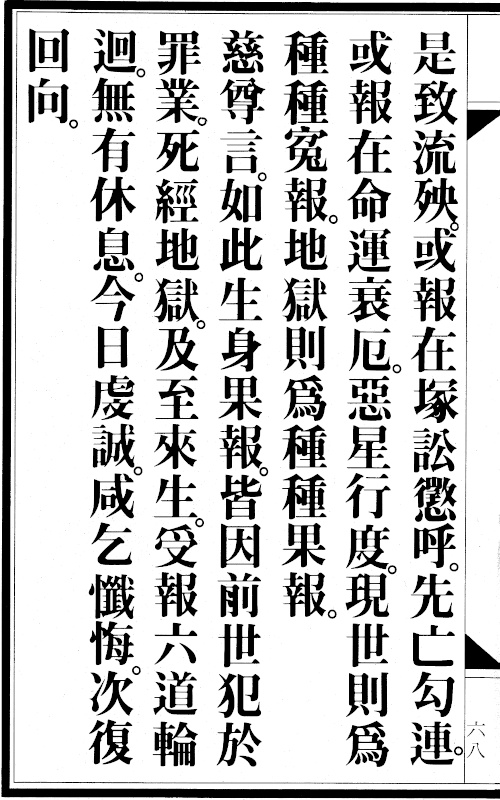 是致流殃。或報在塚訟懲呼。先亡勾連。
或報在命運衰厄。惡星行度。現世則爲
種種寃報。地獄則爲種種果報。
慈尊言。如此生身果報。皆因前世犯於
罪業。死經地獄。及至來生。受報六道輪
迴。無有休息。今日虔誠。咸乞懺悔。次復
回向。
六八